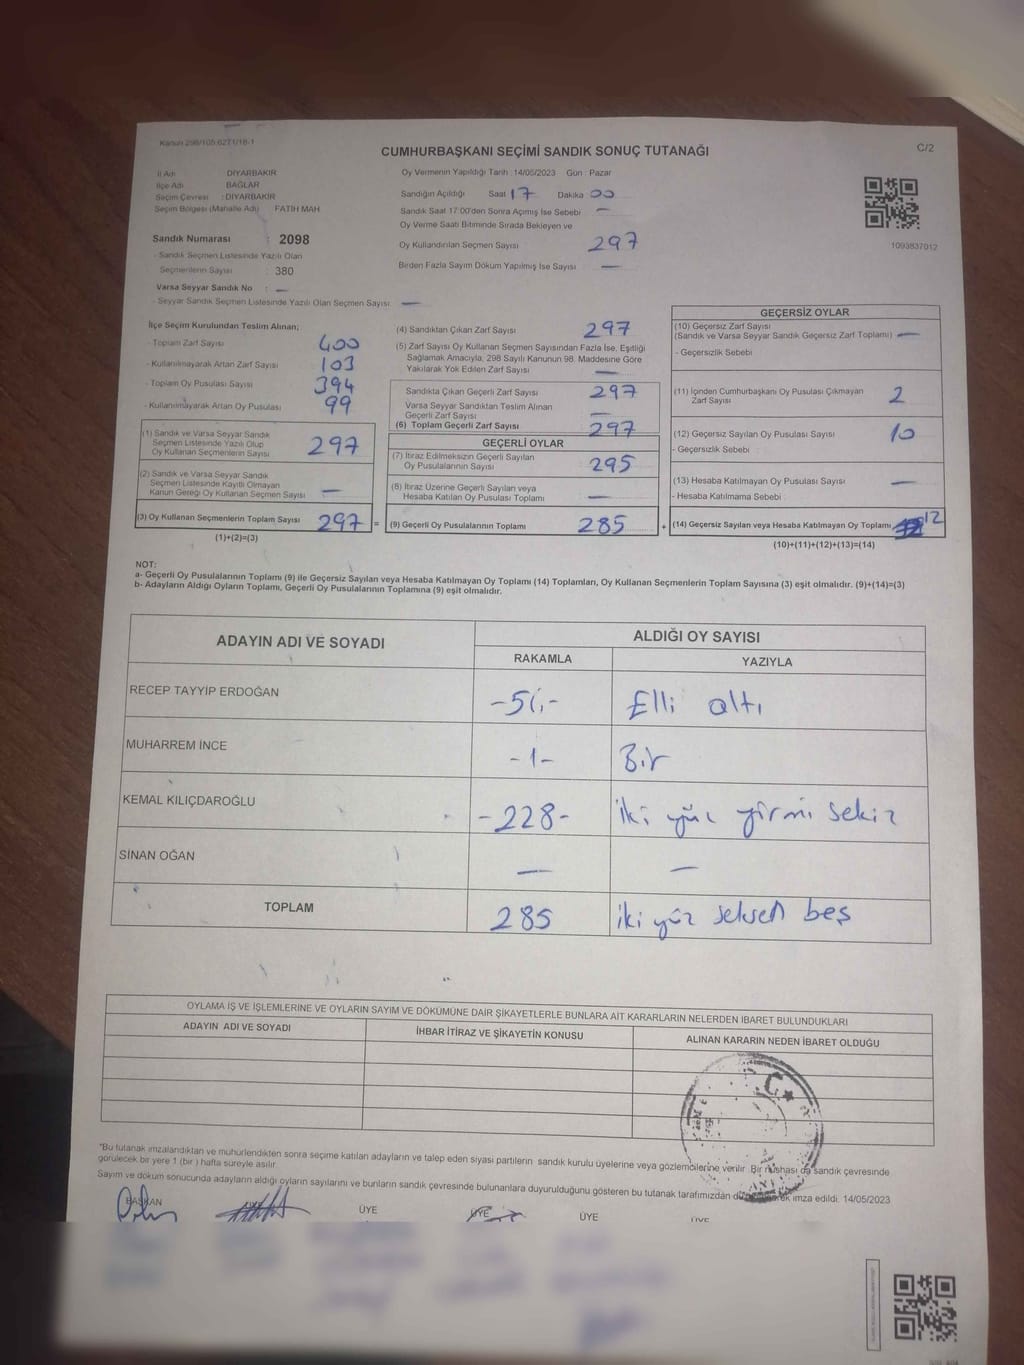 Kanun 298/105,6271/18-1
CUMHURBAŞKANI SEÇİMİ SANDIK SONUÇ TUTANAĞI
C/2
İl Adı : DİYARBAKIR
İlçe Adı : BAĞLAR
Seçim Çevresi : DİYARBAKIR
Seçim Bölgesi (Mahalle Adı) : FATİH MAH
Sandık Numarası : 2098
- Sandık Seçmen Listesinde Yazılı Olan
Seçmenlerin Sayısı : 380
Varsa Seyyar Sandık No : —
- Seyyar Sandık Seçmen Listesinde Yazılı Olan Seçmen Sayısı —
Oy Vermenin Yapıldığı Tarih : 14/05/2023 Gün : Pazar
Sandığın Açıldığı Saat 17 Dakika 00
Sandık Saat 17:00'den Sonra Açımış İse Sebebi —
Oy Verme Saati Bitiminde Sırada Bekleyen ve
Oy Kullandırılan Seçmen Sayısı 297
Birden Fazla Sayım Döküm Yapılmış İse Sayısı —
1093837012
İlçe Seçim Kurulundan Teslim Alınan;
- Toplam Zarf Sayısı 400
- Kullanılmayarak Artan Zarf Sayısı 103
- Toplam Oy Pusulası Sayısı 394
- Kullanılmayarak Artan Oy Pusulası 99
(1) Sandık ve Varsa Seyyar Sandık
Seçmen Listesinde Yazılı Olup
Oy Kullanan Seçmenlerin Sayısı 297
(2) Sandık ve Varsa Seyyar Sandık
Seçmen Listesinde Kayıtlı Olmayan
Kanun Gereği Oy Kullanan Seçmen Sayısı —
(3) Oy Kullanan Seçmenlerin Toplam Sayısı 297 =
(1)+(2)=(3)
(4) Sandıktan Çıkan Zarf Sayısı 297
(5) Zarf Sayısı Oy Kullanan Seçmen Sayısından Fazla İse, Eşitliği
Sağlamak Amacıyla, 298 Sayılı Kanunun 98. Maddesine Göre
Yakılarak Yok Edilen Zarf Sayısı —
Sandıkta Çıkan Geçerli Zarf Sayısı 297
Varsa Seyyar Sandıktan Teslim Alınan
Geçerli Zarf Sayısı —
(6) Toplam Geçerli Zarf Sayısı 297
GEÇERLİ OYLAR
(7) İtiraz Edilmeksizin Geçerli Sayılan
Oy Pusulalarının Sayısı 295
(8) İtiraz Üzerine Geçerli Sayılan veya
Hesaba Katılan Oy Pusulası Toplamı —
(9) Geçerli Oy Pusulalarının Toplamı 285 +
GEÇERSİZ OYLAR
(10) Geçersiz Zarf Sayısı
(Sandık ve Varsa Seyyar Sandık Geçersiz Zarf Toplamı) —
- Geçersizlik Sebebi
(11) İçinden Cumhurbaşkanı Oy Pusulası Çıkmayan
Zarf Sayısı 2
(12) Geçersiz Sayılan Oy Pusulası Sayısı 10
- Geçersizlik Sebebi
(13) Hesaba Katılmayan Oy Pusulası Sayısı —
- Hesaba Katılmama Sebebi
(14) Geçersiz Sayılan veya Hesaba Katılmayan Oy Toplamı 12
(10)+(11)+(12)+(13)=(14)
NOT:
a- Geçerli Oy Pusulalarının Toplamı (9) ile Geçersiz Sayılan veya Hesaba Katılmayan Oy Toplamı (14) Toplamları, Oy Kullanan Seçmenlerin Toplam Sayısına (3) eşit olmalıdır. (9)+(14)=(3)
b- Adayların Aldığı Oyların Toplamı, Geçerli Oy Pusulalarının Toplamına (9) eşit olmalıdır.
ADAYIN ADI VE SOYADI
ALDIĞI OY SAYISI
RAKAMLA YAZIYLA
RECEP TAYYİP ERDOĞAN -56- Elli altı
MUHARREM İNCE -1- Bir
KEMAL KILIÇDAROĞLU -228- iki yüz yirmi sekiz
SİNAN OĞAN — —
TOPLAM 285 iki yüz seksen beş
OYLAMA İŞ VE İŞLEMLERİNE VE OYLARIN SAYIM VE DÖKÜMÜNE DAİR ŞİKAYETLERLE BUNLARA AİT KARARLARIN NELERDEN İBARET BULUNDUKLARI
ADAYIN ADI VE SOYADI İHBAR İTİRAZ VE ŞİKAYETİN KONUSU ALINAN KARARIN NEDEN İBARET OLDUĞU
*Bu tutanak imzalandıktan ve mühürlendikten sonra seçime katılan adayların ve talep eden siyasi partilerin sandık kurulu üyelerine veya gözlemcilerine verilir. Bir nüshası da sandık çevresinde
görülecek bir yere 1 (bir) hafta süreyle asılır.
Sayım ve döküm sonucunda adayların aldığı oyların sayılarını ve bunların sandık çevresinde bulunanlara duyurulduğunu gösteren bu tutanak tarafımızdan imza edildi. 14/05/2023
BAŞKAN ÜYE ÜYE ÜYE ÜYE